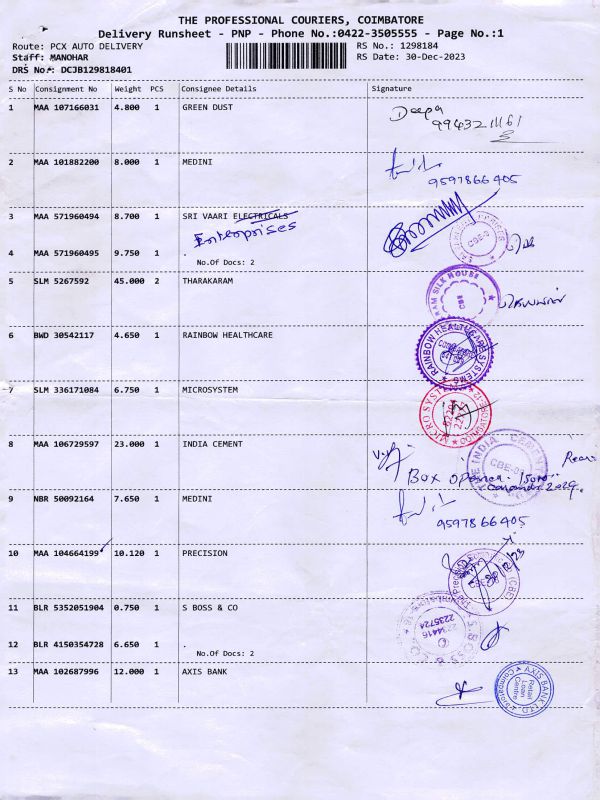 THE PROFESSIONAL COURIERS, COIMBATORE
Delivery Runsheet - PNP - Phone No.:0422-3505555 - Page No.:1
Route: PCX AUTO DELIVERY RS No.: 1298184
Staff: MANOHAR RS Date: 30-Dec-2023
DRS No.: DCJB129818401
S No Consignment No Weight PCS Consignee Details Signature
1 MAA 107166031 4.800 1 GREEN DUST Deepa
2 MAA 101882200 8.000 1 MEDINI
9597866405
3 MAA 571960494 8.700 1 SRI VAARI ELECTRICALS
Enterprises
4 MAA 571960495 9.750 1 .
No.Of Docs: 2
5 SLM 5267592 45.000 2 THARAKARAM SILK HOUSE
6 BWD 30542117 4.650 1 RAINBOW HEALTHCARE RAINBOW HEALTHCARE SYSTEMS
7 SLM 336171084 6.750 1 MICROSYSTEM
8 MAA 106729597 23.000 1 INDIA CEMENT THE INDIA CEMENT
Box opened
9 NBR 50092164 7.650 1 MEDINI
9597866405
10 MAA 104664199 10.120 1 PRECISION
11 BLR 5352051904 0.750 1 S BOSS & CO
12 BLR 4150354728 6.650 1 .
No.Of Docs: 2
13 MAA 102687996 12.000 1 AXIS BANK AXIS BANK LTD.
Retail
Loan
Centre